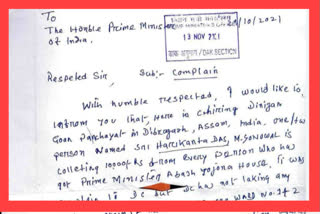 To
The Honble Prime Minister
of India.
/10/2021
12 NOV 2021
डाक अनुभाग / DAK SECTION
Respeted Sir, Sub:- Complain
With humble respected, I would like to
inform you that, Here in
Gaon Panchayat in Dibrugarh, Assam, India. one/two
person Named Sri Harikanta Das, M. Sonowal is
colleting 10000 Rs from every person who has
got Prime Minister Abash Yojona House. I was
complain is DC but DC has not taking any
ward No. 1 & 2